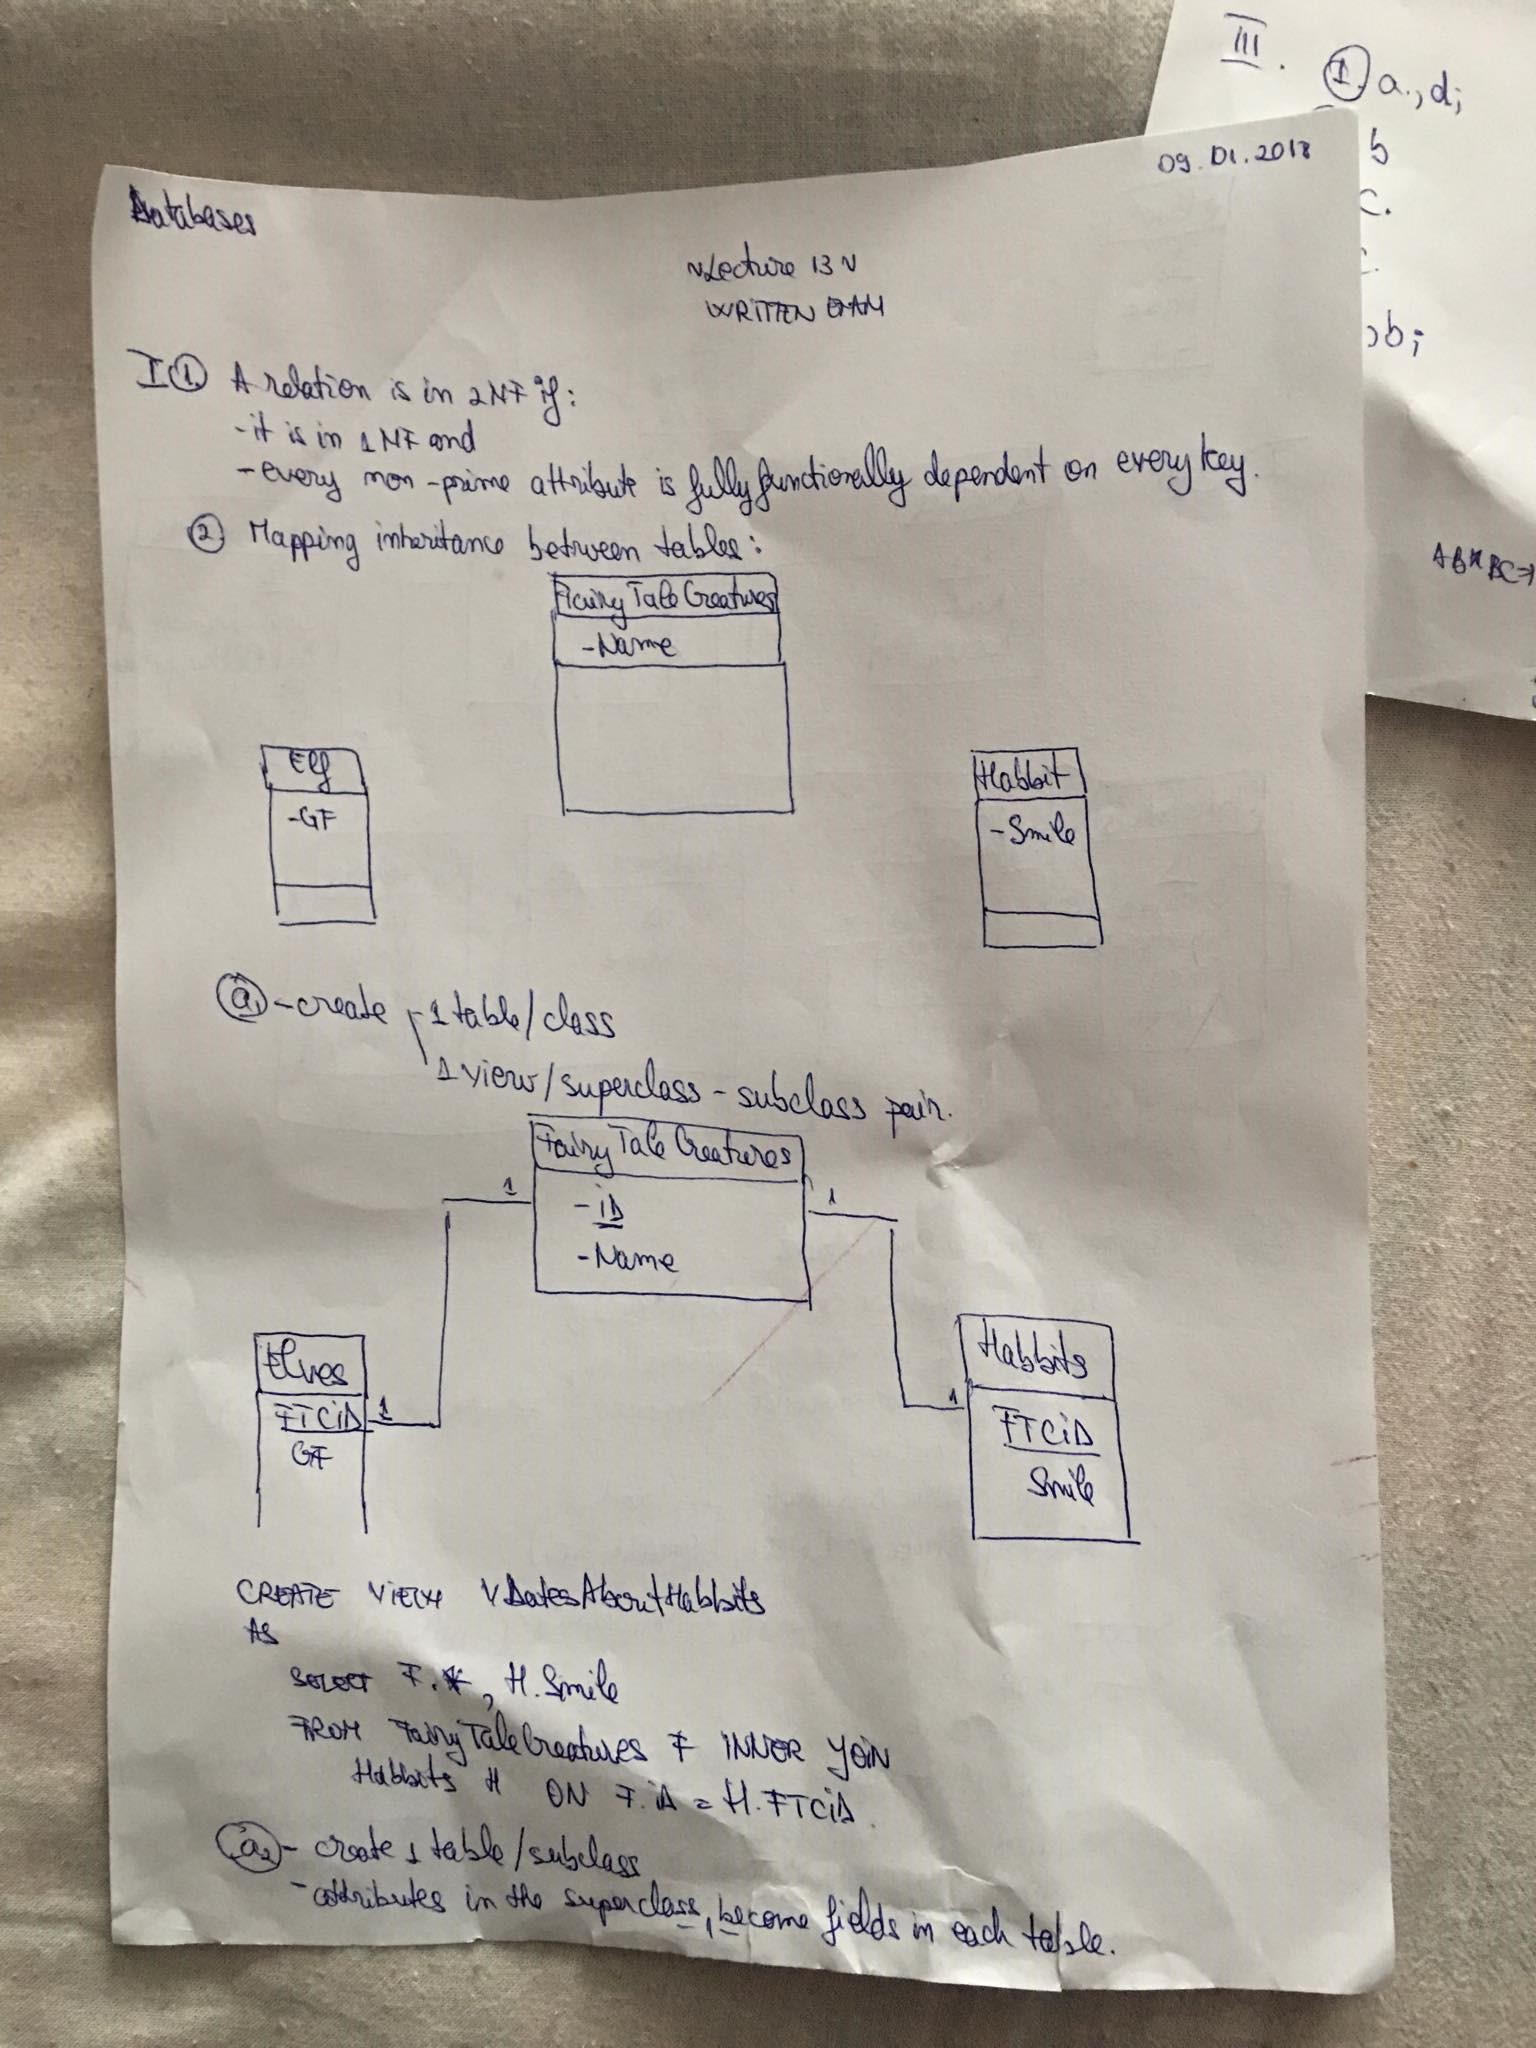 Databases
09.01.2018
~Lecture 13~
WRITTEN EXAM
I ① A relation is in 2NF if:
- it is in 1NF and
- every non-prime attribute is fully functionally dependent on every key.
② Mapping inheritance between tables:
Fairy Tale Creatures
- Name
Elf
- GF
Habbit
- Smile
a₁ - create - 1 table/class
1 view/superclass - subclass pair.
Fairy Tale Creatures
1
1
- iD
- Name
Elves
FTCiD
1
GF
Habbits
1
FTCiD
Smile
CREATE VIEW vDatesAboutHabbits
AS
SELECT F.*, H.Smile
FROM FairyTaleCreatures F INNER JOIN
Habbits H ON F.iD = H.FTCiD
a₂ - create 1 table/subclass
- attributes in the superclass, become fields in each table.
III. ① a., d;
b
c.
c.
b;